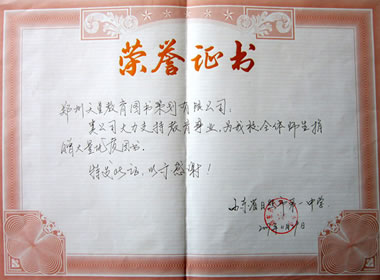 荣誉证书
郑州天星教育图书策划有限公司:
贵公司大力支持教育事业,为我校全体师生捐
赠大量优质图书。
特发此证,以寸感谢!
山东省日照市第一中学